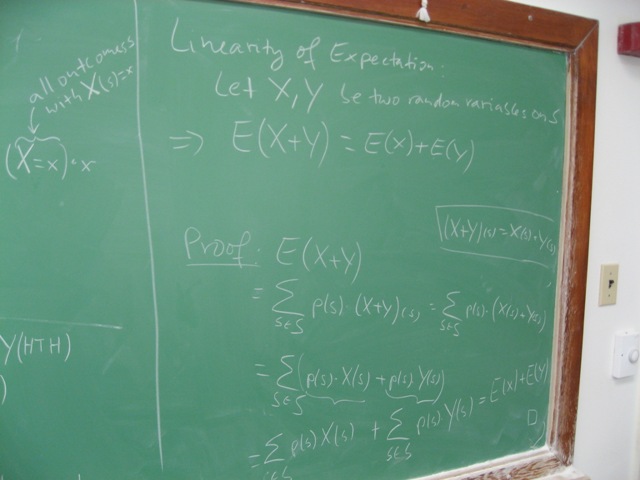 all outcomes s
with X(s)=x
(X=x)·x
Y(HTH)
)
Linearity of Expectation:
Let X,Y be two random variables on S
⇒ E(X+Y) = E(X)+E(Y)
(X+Y)(s) = X(s)+Y(s)
Proof: E(X+Y)
= ∑ s∈S p(s)·(X+Y)(s) = ∑ s∈S p(s)·(X(s)+Y(s))
= ∑ s∈S (p(s)·X(s) + p(s)·Y(s))
= ∑ s∈S p(s) X(s) + ∑ s∈S p(s) Y(s) = E(X)+E(Y)
□